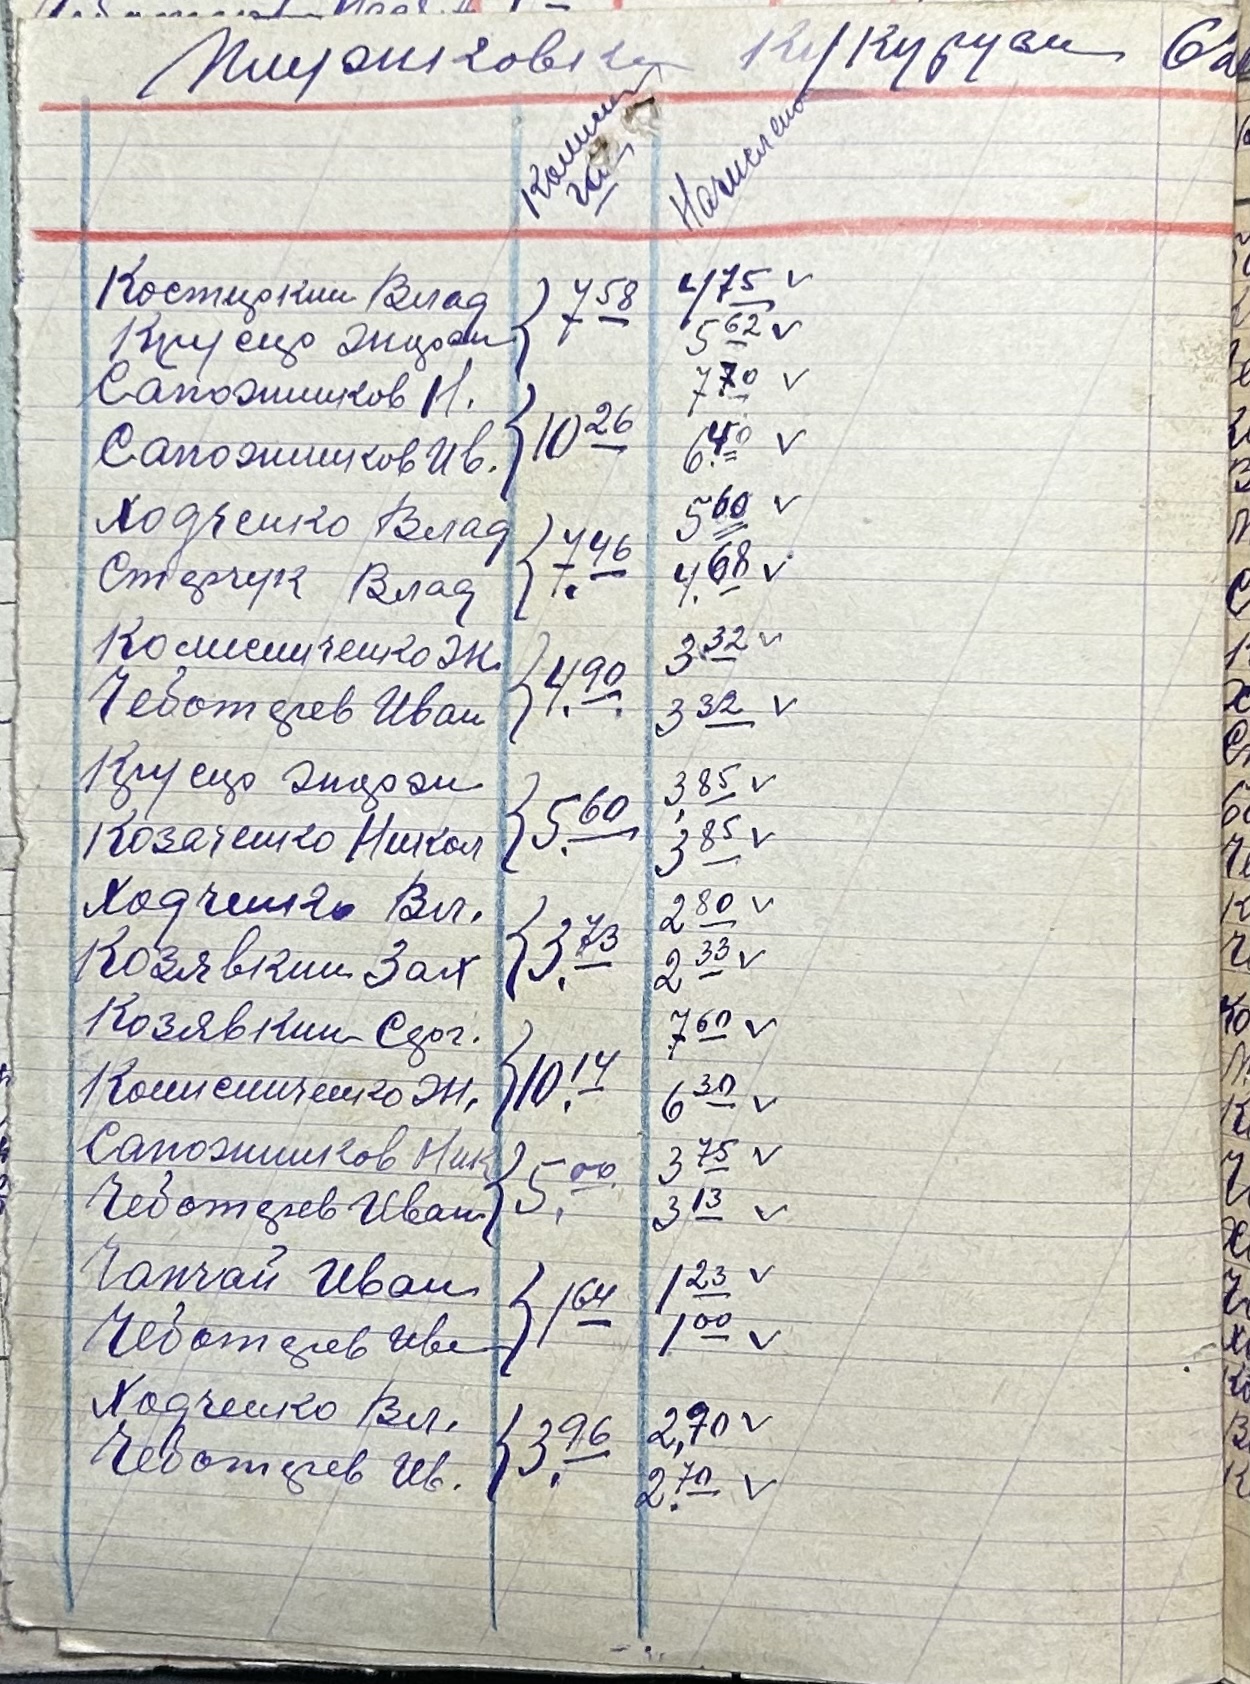 Кукурузы
Количе
га
Начислено
Костюкин Влад } 7 58 475 v
Круецо 5 62 v
Сапожников Н. 7 70 v
Сапожников Ив. } 10 26 6.40 v
Ходченко Влад 5 60 v
Влад } 7.46 4.68 v
Колисниченко Ж. 3.32 v
Чеботарев Иван } 4.90 3 32 v
Круецо 3.85 v
Козаченко Никол } 5.60 3 85 v
Ходченко Вл. 2 80 v
Козявкин Зах } 3.73 2 33 v
Козявкин 7 60 v
Колисниченко Ж. } 10.14 6 30 v
Сапожников Ник 3 75 v
Чеботарев Иван } 5.00 3 13 v
Чапчай Иван 1 23 v
Чеботарев Ив } 1 64 1 00 v
Ходченко Вл. 2,70 v
Чеботарев Ив. } 3.96 2.70 v